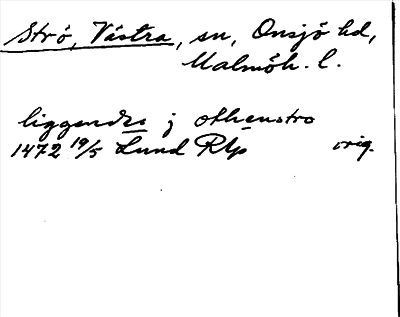 Strö, Västra, sn, Onsjö hd,
Malmöh. l.
liggendes j othenstro
1472 19/5 Lund Rtp orig.